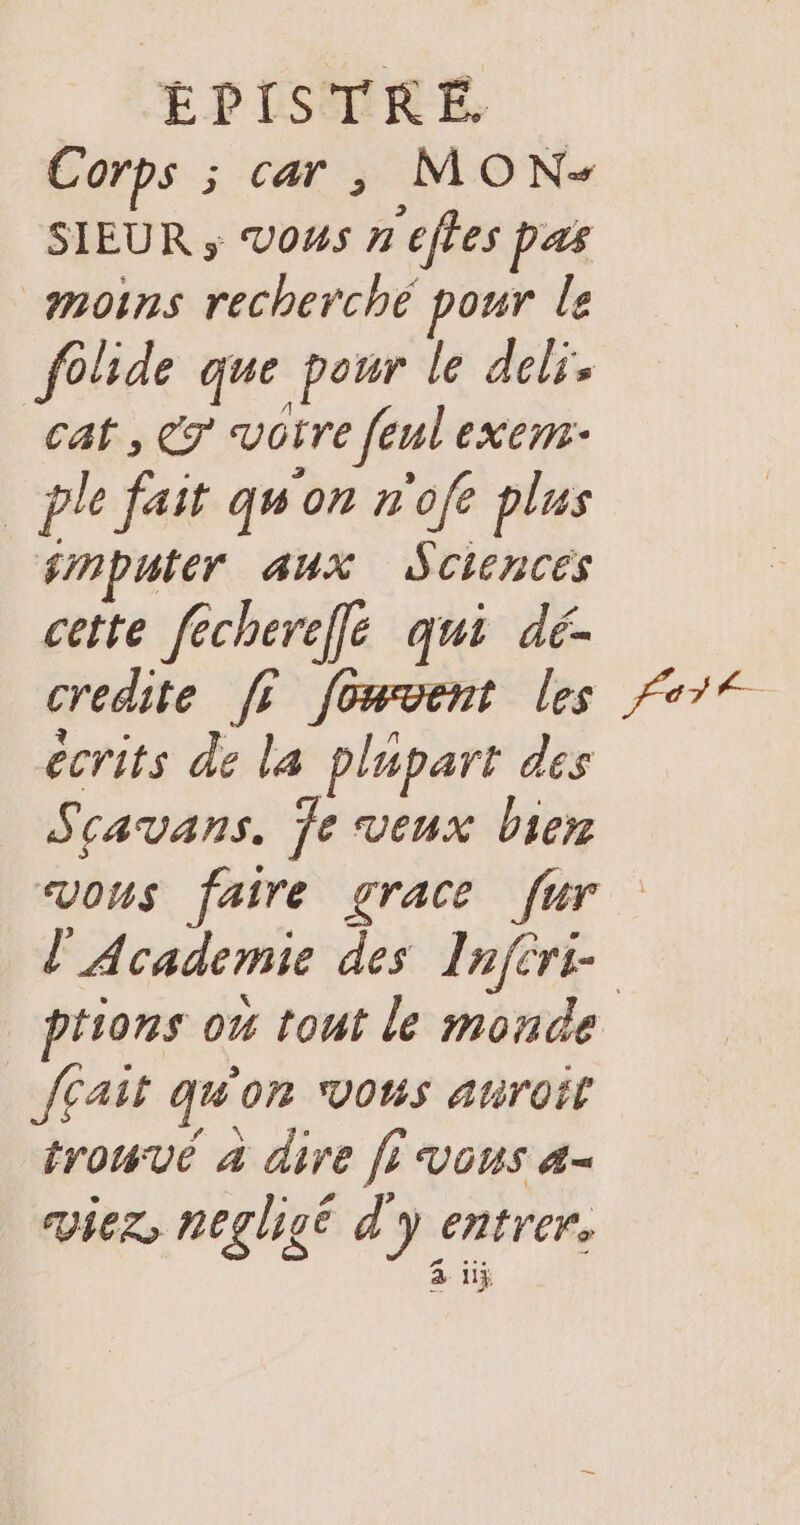 EPISTRE.
Corps ; car , MON-
SIEUR , vous n'estes pas
moins recherché pour le
ſolide que pour le deli-
cat , & votre ſeul exem-
ple fait qu'on n'oſe plus
imputer aux Sciences
cette ſechereſſe qui dé-
credite ſi ſouvent les
écrits de la plûpart des
Sçavans. Je veux bien
vous faire grace ſur
l'Academie des Inſcri-
ptions où tout le monde
ſçait qu'on vous auroit
trouvé à dire ſi vous a-
viez, negligé d'y entrer.
ã iij